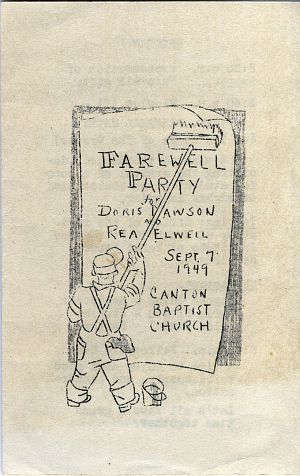 FAREWELL
PARTY
for
DORIS DAWSON
AND
REA ELWELL
SEPT. 7
1949
CANTON
BAPTIST
CHURCH